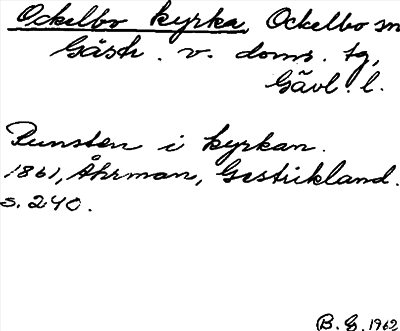 Ockelbo kyrka, Ockelbo sn
Gästr. v. doms. tg,
Gävl. l.
Runsten i kyrkan.
1861, Åhrman, Gestrikland.
s. 240.
B. G. 1962